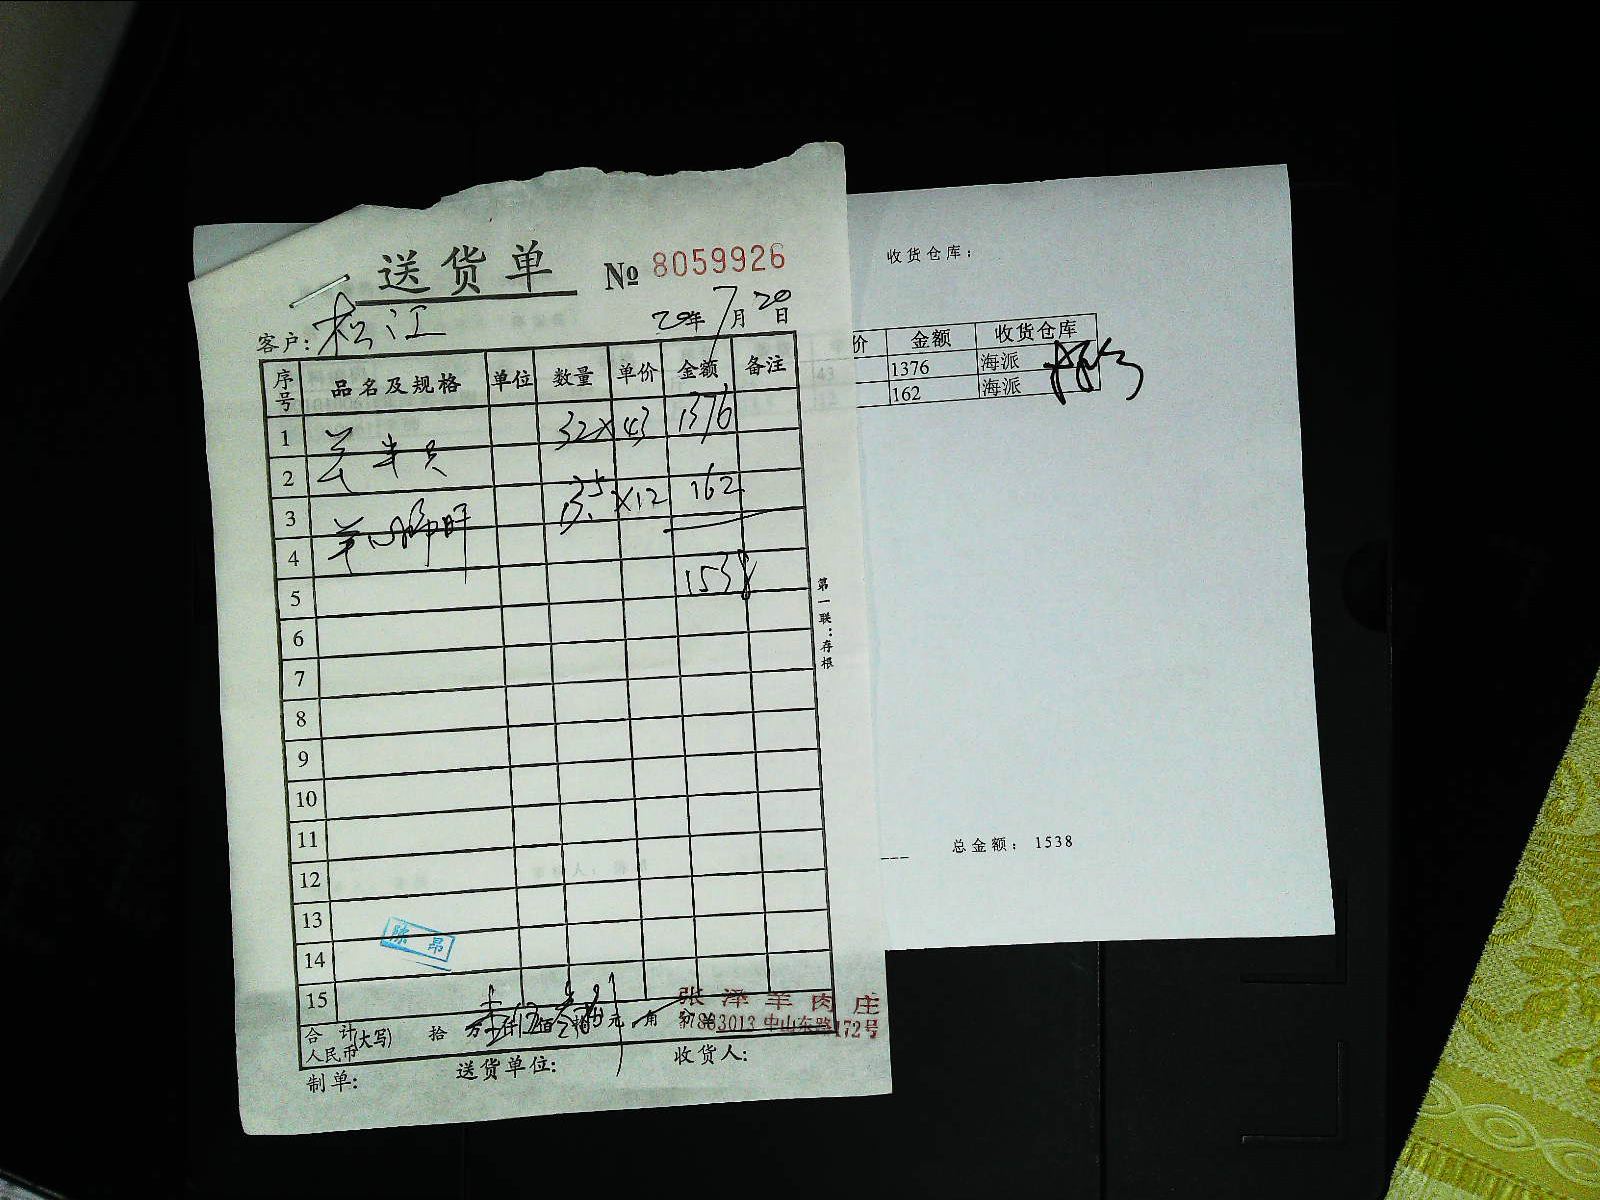 送货单 № 8059926
客户: 松江 2019年7月20日
序号 品名及规格 单位 数量 单价 金额 备注
1 32× 43 1376
2 羊
3 13.5 ×12 162
4 羊心肺肝
5 1538
6
7
8
9
10
11
12
13
14
15
陈昂
合计人民币(大写) 拾 万 仟 佰 拾 元 角
张泽羊肉庄
中山东路172号
制单: 送货单位: 收货人:
第一联:存根
收货仓库:
价 金额 收货仓库
43 1376 海派
12 162 海派
总金额: 1538